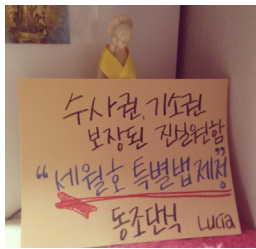 수사권, 기소권
보장된 진실원함
“세월호 특별법제정”
동조단식 Lucia